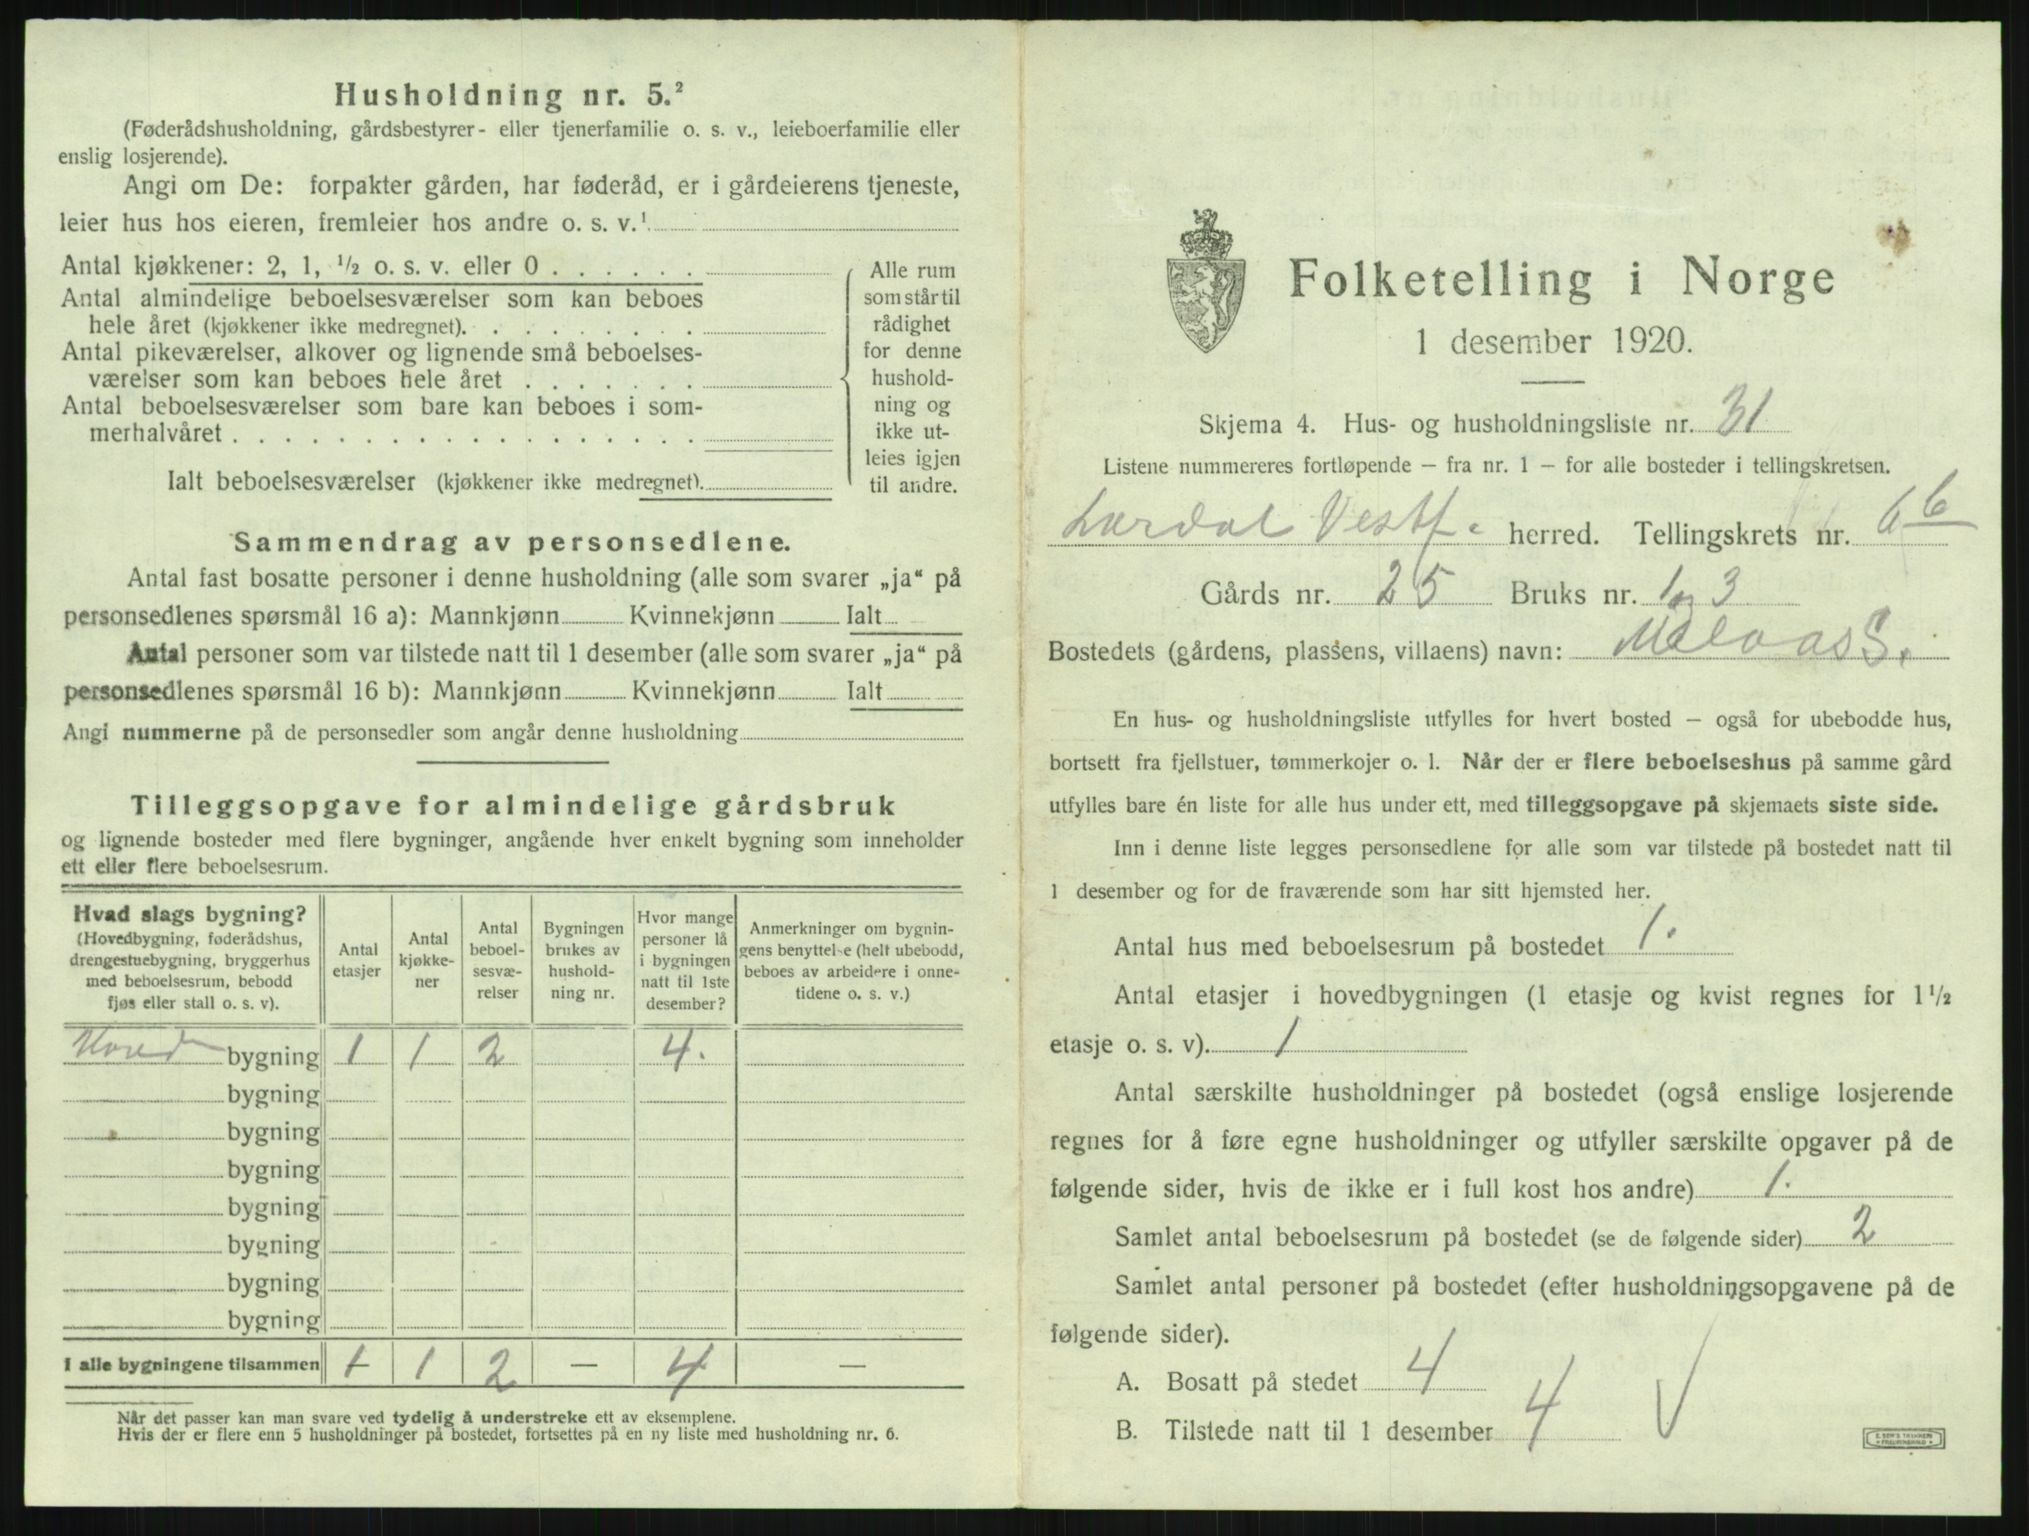 Husholdning nr. 5.²
(Føderådshusholdning, gårdsbestyrer- eller tjenerfamilie o. s. v., leieboerfamilie eller
enslig losjerende).
Angi om De: forpakter gården, har føderåd, er i gårdeierens tjeneste,
leier hus hos eieren, fremleier hos andre o. s. v.¹
Antal kjøkkener: 2, 1, ½ o. s. v. eller 0
Antal almindelige beboelsesværelser som kan beboes
hele året (kjøkkener ikke medregnet)
Antal pikeværelser, alkover og lignende små beboelses-
værelser som kan beboes hele året
Antal beboelsesværelser som bare kan beboes i som-
merhalvåret
Ialt beboelsesværelser (kjøkkener ikke medregnet).
Alle rum
som står til
rådighet
for denne
hushold-
ning og
ikke ut-
leies igjen
til andre.
Sammendrag av personsedlene.
Antal fast bosatte personer i denne husholdning (alle som svarer „ja“ på
personsedlenes spørsmål 16 a): Mannkjønn Kvinnekjønn Ialt
Antal personer som var tilstede natt til 1 desember (alle som svarer „ja“ på
personsedlenes spørsmål 16 b): Mannkjønn Kvinnekjønn Ialt
Angi nummerne på de personsedler som angår denne husholdning
Tilleggsopgave for almindelige gårdsbruk
og lignende bosteder med flere bygninger, angående hver enkelt bygning som inneholder
ett eller flere beboelsesrum.
Hvad slags bygning?
(Hovedbygning, føderådshus,
drengestuebygning, bryggerhus
med beboelsesrum, bebodd
fjøs eller stall o. s. v).
Antal
etasjer
Antal
kjøkke-
ner
Antal
beboel-
sesvæ-
relser
Bygningen
brukes av
hushold-
ning nr.
Hvor mange
personer lå
i bygningen
natt til 1ste
desember?
Anmerkninger om bygnin-
gens benyttelse (helt ubebodd,
beboes av arbeidere i onne-
tidene o. s. v.)
Hoved bygning 1 1 2 4.
bygning
bygning
bygning
bygning
bygning
bygning
bygning
I alle bygningene tilsammen 1 1 2 — 4 —
Når det passer kan man svare ved tydelig å understreke ett av eksemplene.
Hvis der er flere enn 5 husholdninger på bostedet, fortsettes på en ny liste med husholdning nr. 6.
Folketelling i Norge
1 desember 1920.
Skjema 4. Hus- og husholdningsliste nr. 31
Listene nummereres fortløpende — fra nr. 1 — for alle bosteder i tellingskretsen.
Lardal Vestf. herred. Tellingskrets nr. 6 6
Gårds nr. 25 Bruks nr. 1 og 3
Bostedets (gårdens, plassens, villaens) navn:
En hus- og husholdningsliste utfylles for hvert bosted — også for ubebodde hus,
bortsett fra fjellstuer, tømmerkojer o. l. Når der er flere beboelseshus på samme gård
utfylles bare én liste for alle hus under ett, med tilleggsopgave på skjemaets siste side.
Inn i denne liste legges personsedlene for alle som var tilstede på bostedet natt til
1 desember og for de fraværende som har sitt hjemsted her.
Antal hus med beboelsesrum på bostedet 1.
Antal etasjer i hovedbygningen (1 etasje og kvist regnes for 1 ½
etasje o. s. v). 1
Antal særskilte husholdninger på bostedet (også enslige losjerende
regnes for å føre egne husholdninger og utfyller særskilte opgaver på de
følgende sider, hvis de ikke er i full kost hos andre) 1.
Samlet antal beboelsesrum på bostedet (se de følgende sider) 2
Samlet antal personer på bostedet (efter husholdningsopgavene på de
følgende sider).
A. Bosatt på stedet 4
B. Tilstede natt til 1 desember 4